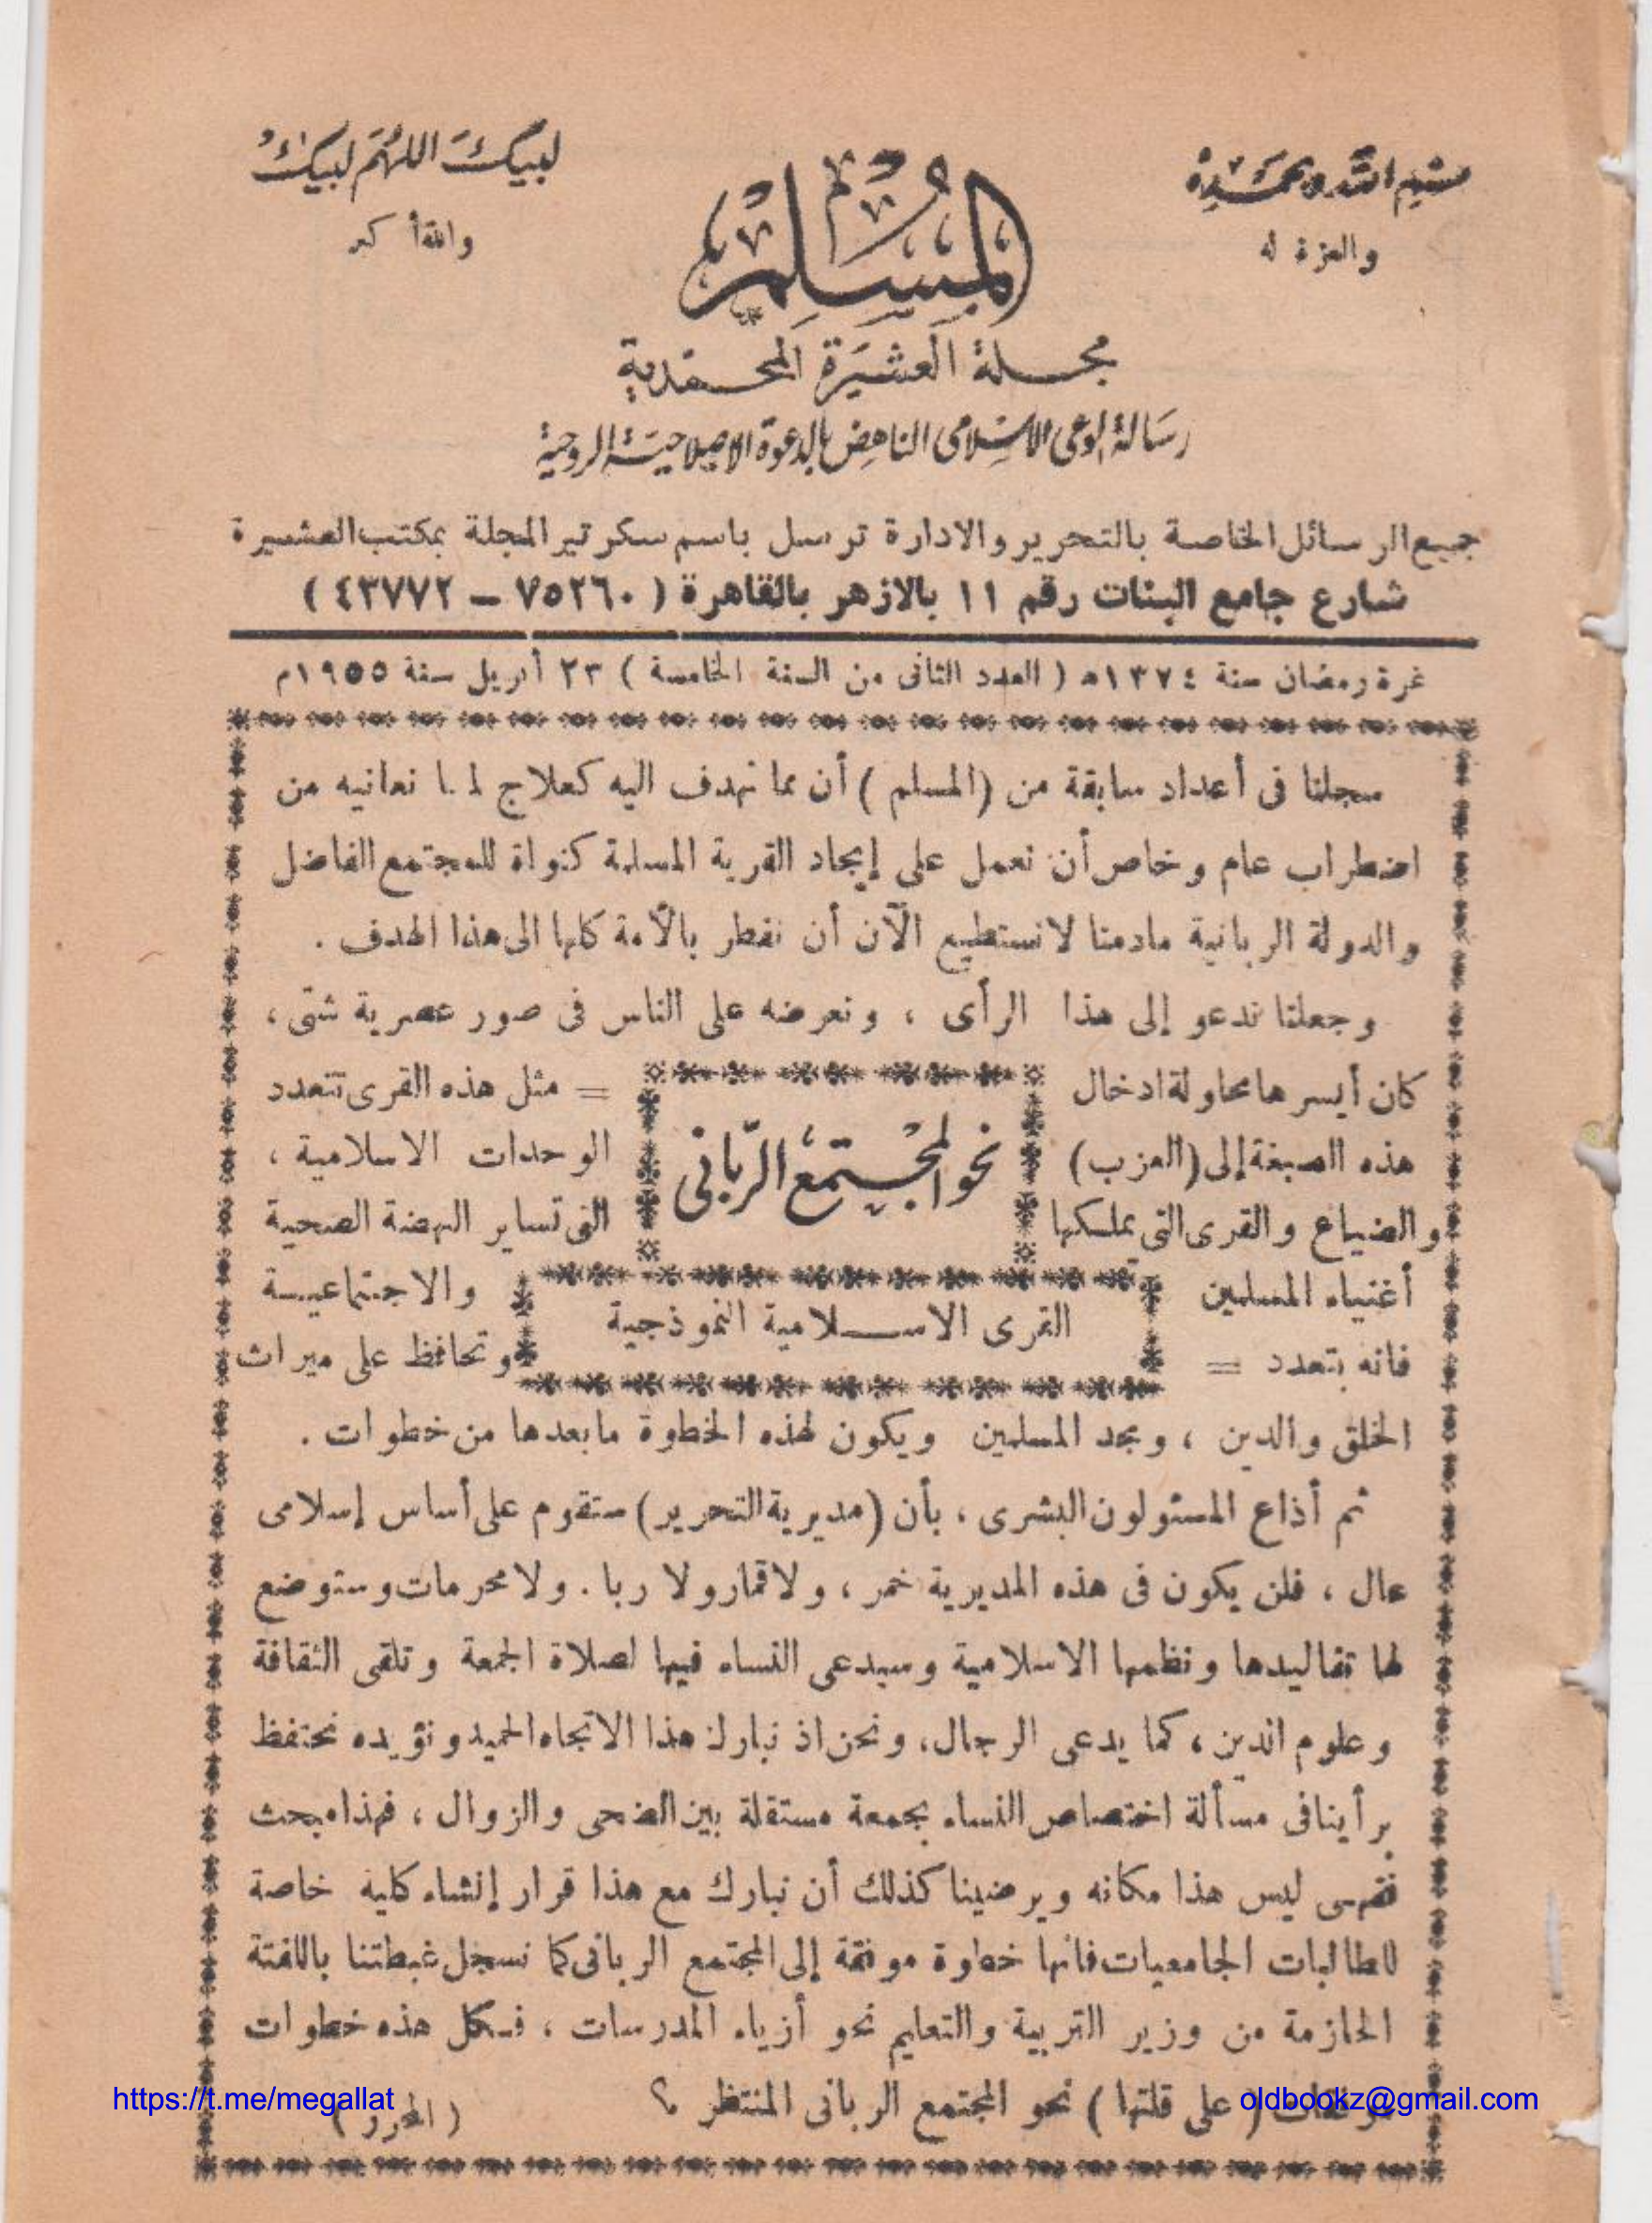 بسم الله وبحمده
والعزة له
لبيك اللهم لبيك
والله أكبر
المسلم
مجلة العشيرة المحمدية
رسالة الوعى الإسلامى الناهض بالدعوة الإصلاحية الروحية
جميع الرسائل الخاصة بالتحرير والادارة ترسل باسم سكرتير المجلة بمكتب العشيرة
شارع جامع البنات رقم ١١ بالازهر بالقاهرة ( ٧٥٢٦٠ – ٤٣٧٧٢ )
غرة رمضان سنة ١٣٧٤ه ( العدد الثانى من السنة الخامسة ) ٢٣ أبريل سنة ١٩٥٥م
سجلنا فى أعداد سابقة من (المسلم ) أن مما نهدف اليه كعلاج لما نعانيه من
اضطراب عام وخاص أن نعمل على إيجاد القرية المسلمة كنواة للمجتمع الفاضل
والدولة الربانية مادمنا لا نستطيع الآن أن نفطر بالأمة كلها الى هذا الهدف .
وجعلنا ندعو إلى هذا الرأى ، ونعرضه على الناس فى صور عصرية شتى ،
كان أيسرها محاولة ادخال
هذه الصبغة إلى (العزب)
والضياع والقرى التى يملكها
أغنياء المسلمين
فانه بتعدد =
نحو المجتمع الربانى
القرى الاسلامية النموذجية
= مثل هذه القرى تتعدد
الوحدات الاسلامية ،
التى تساير النهضة الصحية
والاجتماعية
وتحافظ على ميراث
الخلق والدين ، ومجد المسلمين ويكون لهذه الخطوة ما بعدها من خطوات .
ثم أذاع المسئولون البشرى ، بأن (مديرية التحرير) ستقوم على أساس إسلامى
عال ، فلن يكون فى هذه المديرية خمر ، ولا قمار ولا ربا . ولا محرمات وستوضع
لها تقاليدها ونظمها الاسلامية وسيدعى النساء فيها لصلاة الجمعة وتلقى الثقافة
وعلوم الدين ، كما يدعى الرجال ، ونحن اذ نبارك هذا الاتجاه الحميد ونؤيده نحتفظ
برأينا فى مسألة اختصاص النساء بجمعة مستقلة بين الضحى والزوال ، فهذا مبحث
فقهى ليس هذا مكانه ويرضينا كذلك أن نبارك مع هذا قرار إنشاء كلية خاصة
للطالبات الجامعيات فانها خطوة موفقة إلى المجتمع الربانى كما نسجل غبطتنا باللفتة
الحازمة من وزير التربية والتعليم نحو أزياء المدرسات ، فكل هذه خطوات
( على قلتها ) نحو المجتمع الربانى المنتظر ؟
( المحرر )
https://t.me/megallat
oldbookz@gmail.com